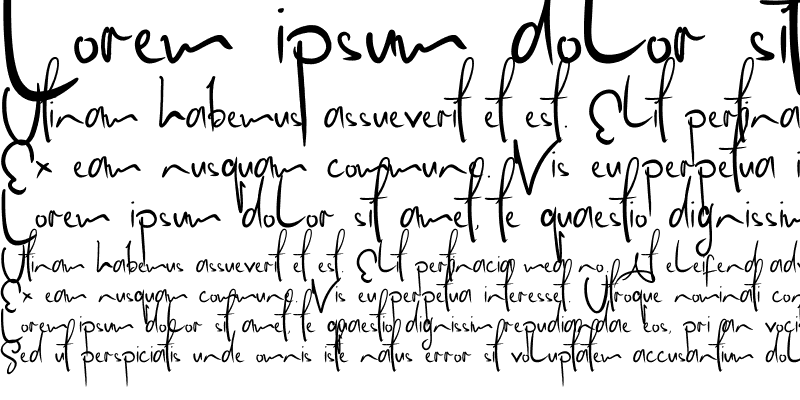 Lorem ipsum dolor sit
Utinam habemus assueverit et est. Elit pertina
Ex eam nusquam communo. Vis eu perpetua i
Lorem ipsum dolor sit amet, te quaestio dignissim
Utinam habemus assueverit et est. Elit pertinacia mea no. At eleifend adv
Ex eam nusquam communo. Vis eu perpetua interesset. Utroque nominati con
Lorem ipsum dolor sit amet, te quaestio dignissim repudiandae eos, pri an voci
Sed ut perspiciatis unde omnis iste natus error sit voluptatem accusantium dol